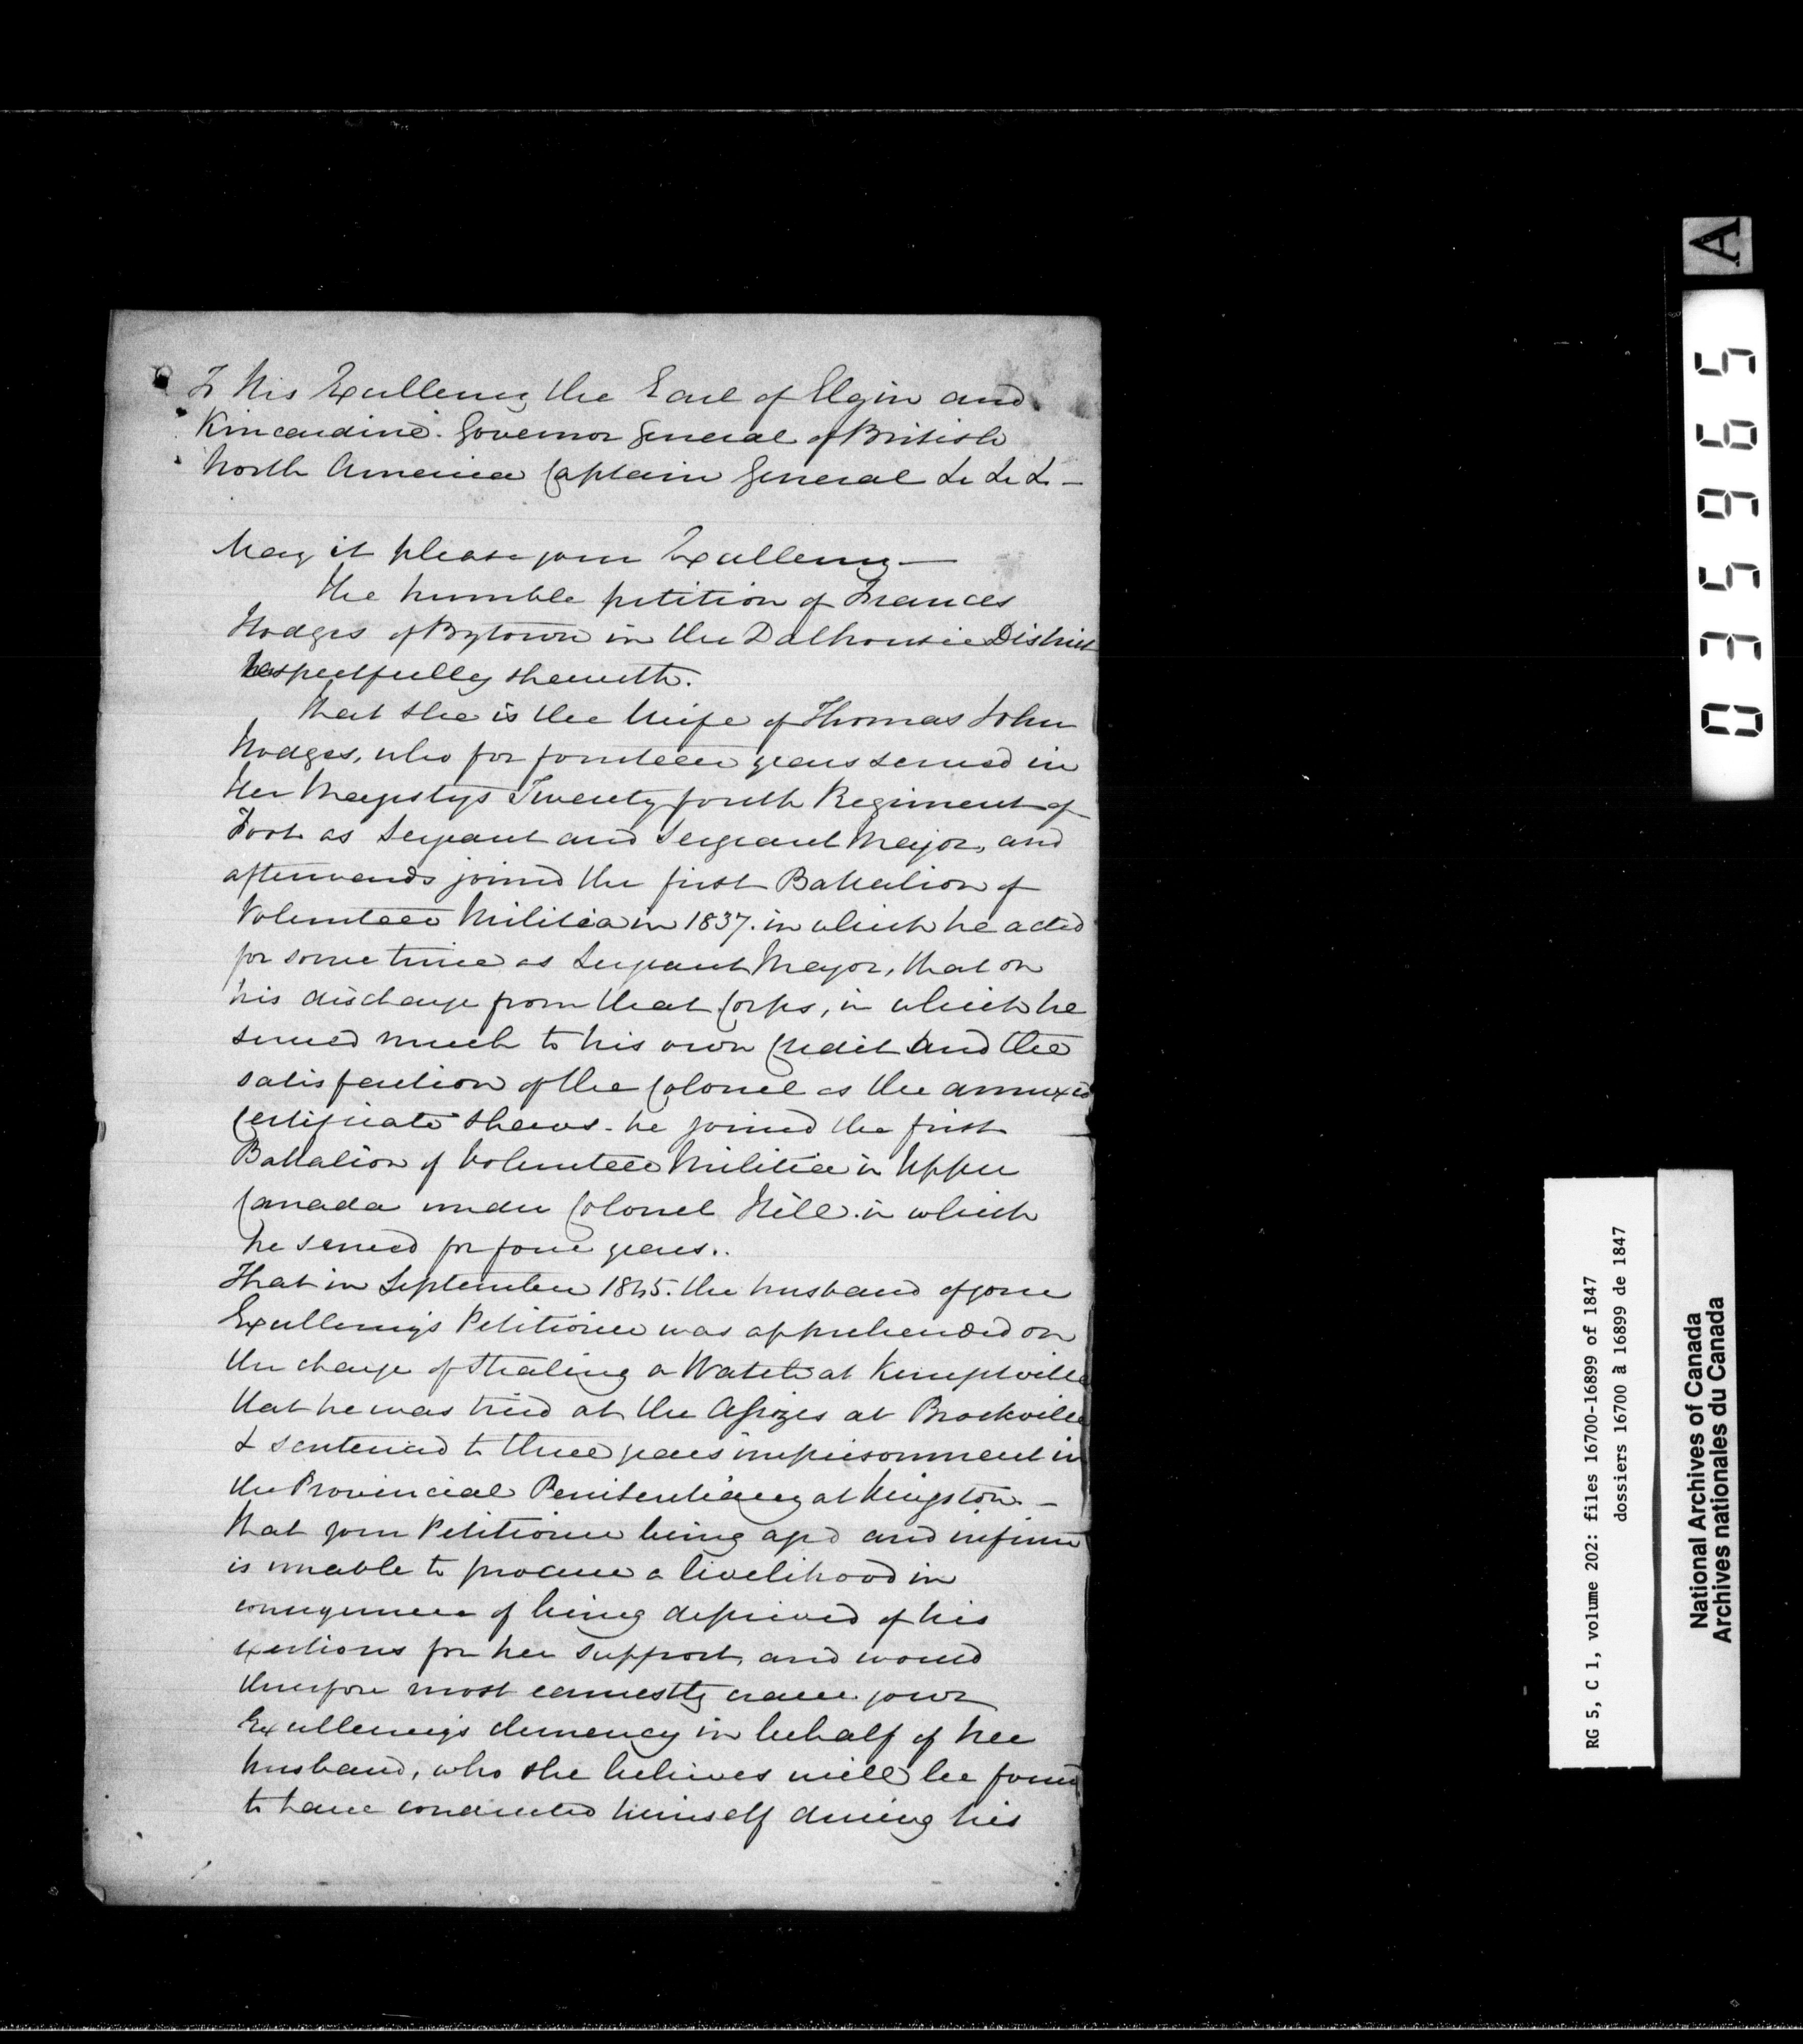 To His Excellency the Earl of Elgin and
Kincardine. Governor General of British
North America Captain General &c &c &c —
May it please your Excellency —
The humble petition of Frances
Hodges of Bytown in the Dalhousie District
respectfully sheweth.
That she is the Wife of Thomas John
Hodges, who for fourteen years served in
Her Majestys Twenty fourth Regiment of
Foot as Serjeant and Sergeant Major, and
afterwards joined the first Battalion of
Volunteer Militia in 1837. in which he acted
for some time as Serjeant Major, that on
his discharge from that Corps, in which he
served much to his own Credit and the
satisfaction of the Colonel as the annexed
Certificate shews. he joined the first
Battalion of Volunteer Militia in Upper
Canada under Colonel Hill. in which
he served for four years..
That in September 1845. the husband of your
Excellency's Petitioner was apprehended on
the charge of stealing a Watch at Kemptville
that he was tried at the Assizes at Brockville
& sentenced to three years imprisonment in
the Provincial Penitentiary at Kingston. —
that your Petitioner being aged and infirm
is unable to procure a livelihood in
consequence of being deprived of his
exertions for her support, and would
therefore most earnestly crave your
Excellency's clemency in behalf of her
husband, who she believes will be found
to have conducted himself during his
A
035965
RG 5, C 1, volume 202: files 16700-16899 of 1847
dossiers 16700 à 16899 de 1847
National Archives of Canada
Archives nationales du Canada